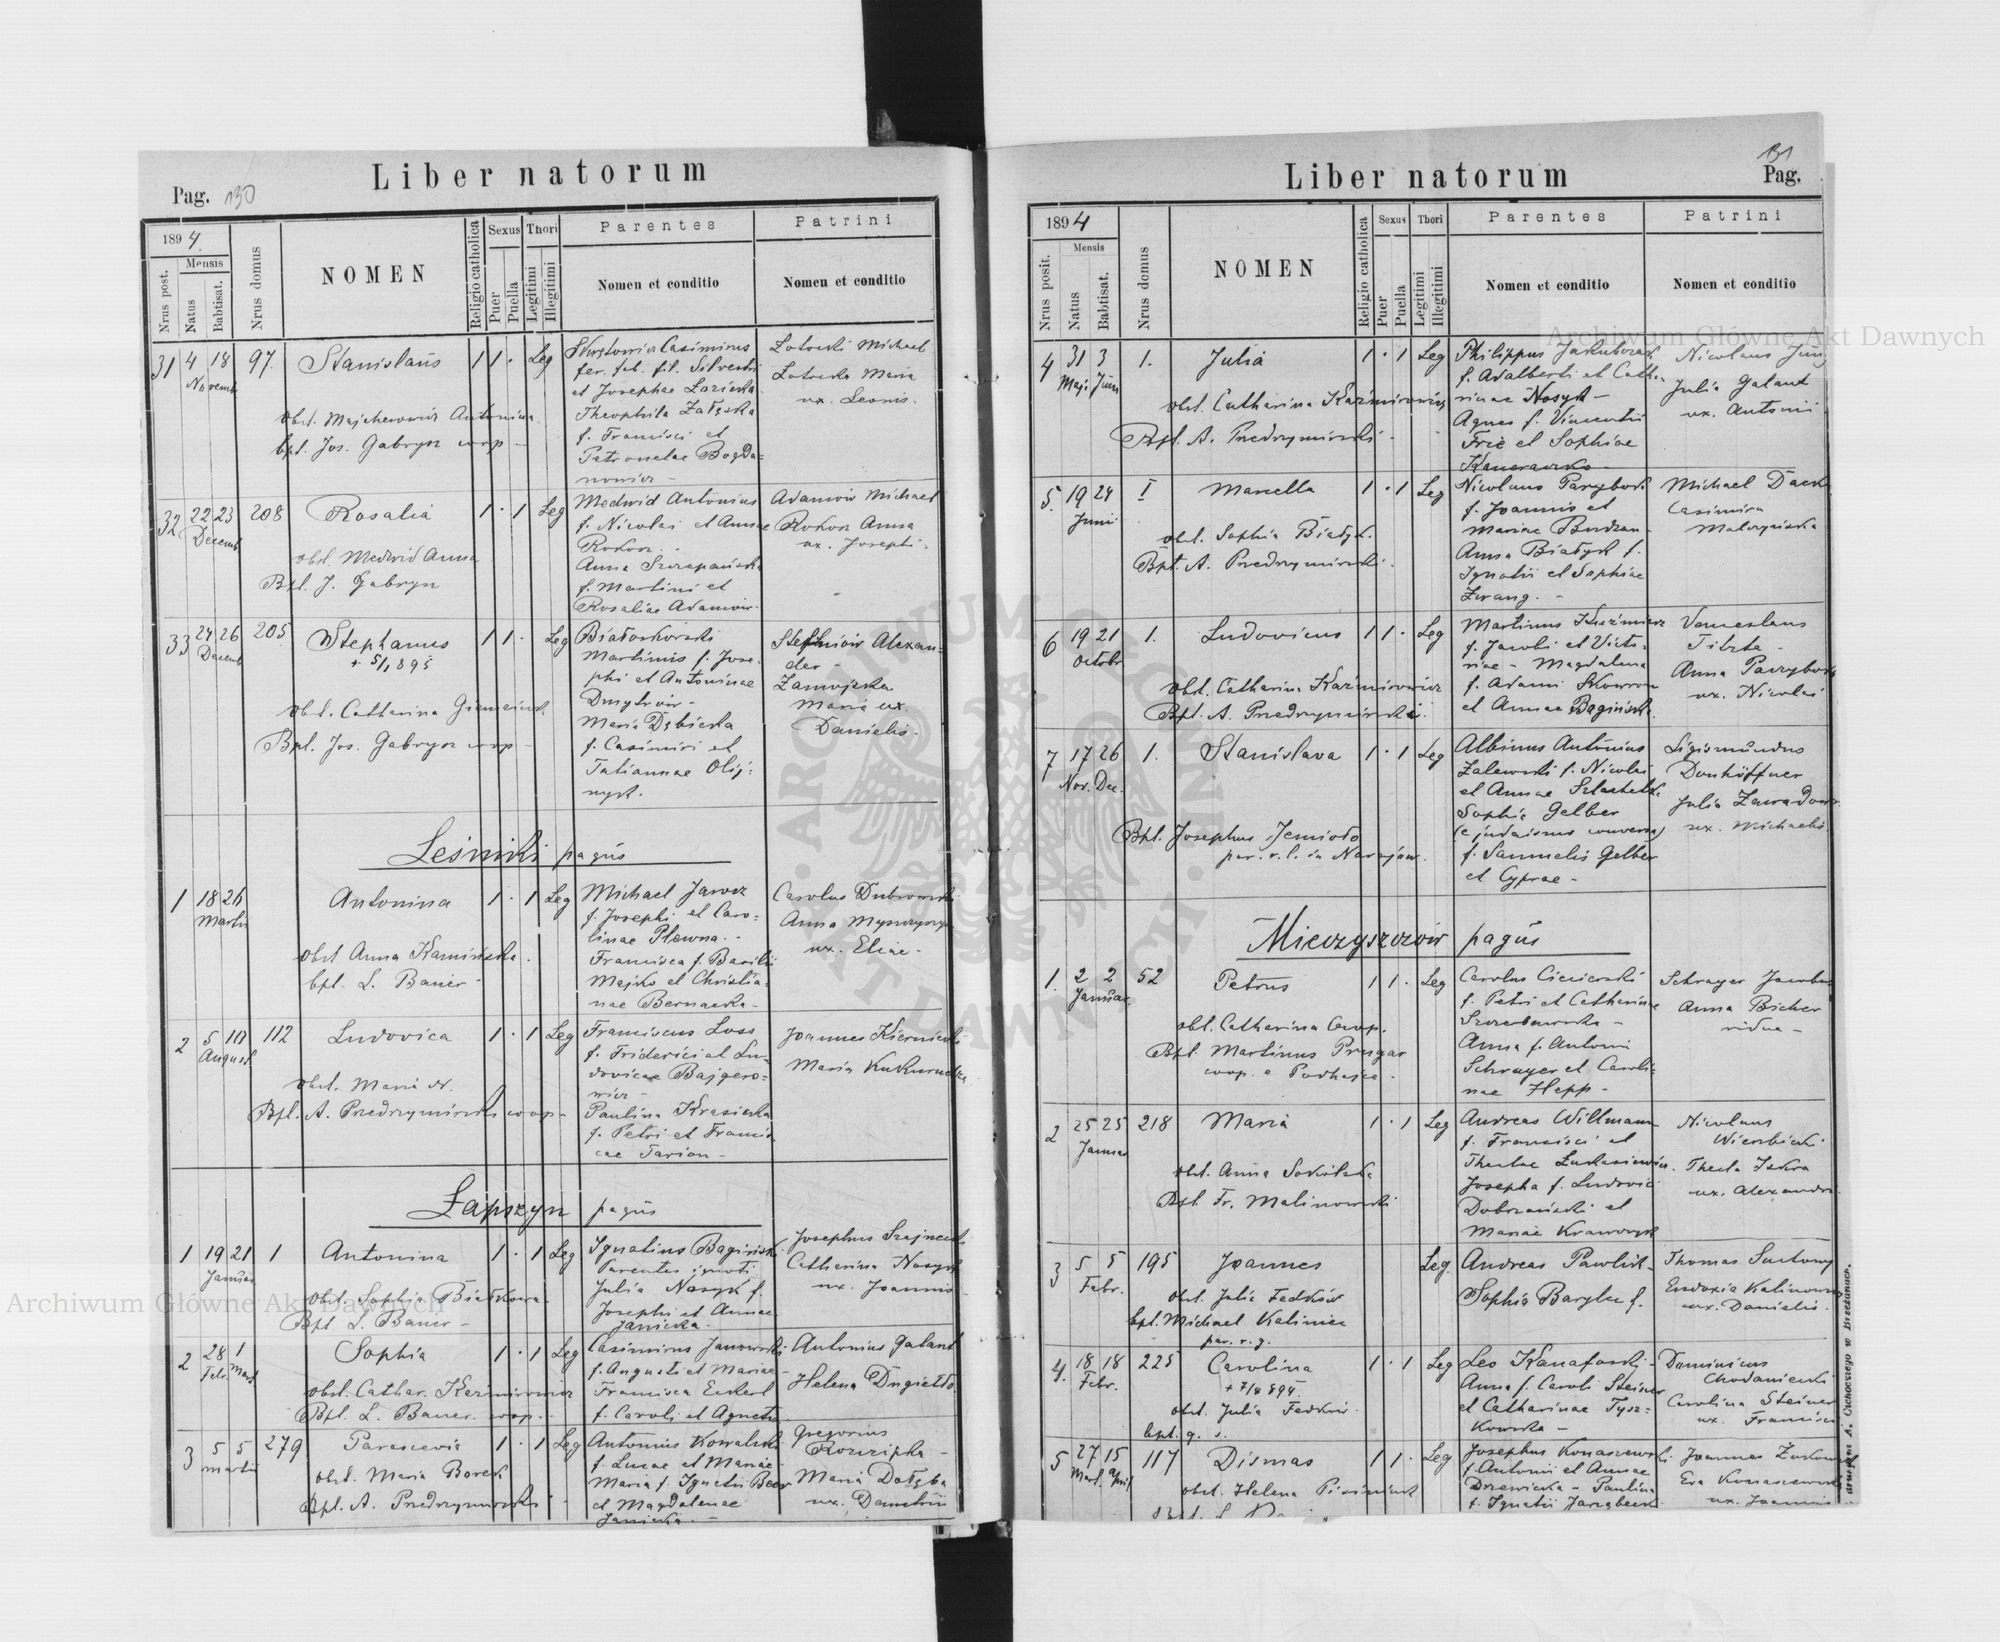 Liber natorum
Pag. 130
1894
Nrus post.
Mensis
Natus
Babtisat.
Nrus domus
NOMEN
Religio catholica
Sexus
Puer
Puella
Thori
Legitimi
Illegitimi
Parentes
Nomen et conditio
Patrini
Nomen et conditio
31 4 18 97. Stanislaus 1 1 · Leg
Novemb
Casimirus
et Josephae
Theophila Załęska
f. Francisci et
Petronelae Bogda=
nowicz -
Łotocki Michael
Łotocka Maria
ux. Leonis.
obst. Majcherowicz Antonina
bpt. Jos. Gabrysz coop -
32 22 23 208 Rosalia 1 · 1 Leg
Decemb
Medwid Antonius
f. Nicolai et Annae
Rokosz. -
Anna Szczepańska
f. Martini et
Rosaliae Adamowicz.
Adamowicz Michael
Rokosz Anna
ux. Josephi -
obst. Medwid Anna
Bpt. J. Gabrysz
33 24 26 205. Stephanus 1 1 · Leg
Decemb
+ 5/1 895
Białoskórski
Martinus f. Jose=
phi et Antoninae
Dmytrów -
Maria Dębicka
f. Casimiri et
Tatiannae Olij=
nyk.
Alexan=
der -
Zamojska
Maria ux.
Danielis -
obst. Catharina
Bpt. Jos. Gabrysz coop -
Leśniki pagus
1 18 26 Antonina 1 · 1 Leg
Martii
Michael Jarosz
f. Josephi et Caro=
linae Plewna. -
Francisca f. Basilii
Majko et Christia=
nae Bernacka -
Carolus Dubrowski
Anna
ux. Eliae -
obst Anna Kamińska.
bpt. L. Bauer -
2 5 10 112 Ludovica 1 · 1 Leg
August.
Franciscus Loss
f. Friderici et Lu=
dovicae Bajgero=
wicz -
Paulina Krasicka
f. Petri et Francis
cae Tarion -
Joannes Kiernicki
Maria Kukurudza
obst. Maria N.
Bpt. A. Przedrzymirski coop -
Łapszyn pagus
1 19 21 1 Antonina 1 · 1 Leg
Januar
Ignatius Bagiński
Parentes ignoti
Julia Nosyk f.
Josephi et Annae
Janicka. -
Josephus
Catharina Nosyk
ux. Joannis -
obst. Sophia Białkowa -
Bpt. L. Bauer -
2 28 1 Sophia 1 · 1 Leg
Febr. Mart.
Casimirus Janowski
f. Augusti et Mariae -
Francisca Eckert
f. Caroli et Agnetis
Antonius Galant
Helena Długietto.
obst. Cathar. Kazimirowicz
Bpt. L. Bauer coop -
3 5 5 279 Parascevia 1 · 1 Leg
Martii
Antonius Kowalski
f. Lucae et Mariae
Maria f. Ignatii
et Magdalenae
Janicka. -
Gregorius
Maria Dołęba
ux. Demetrii
obst. Maria Borek
Bpt. A. Przedrzymirski -
Liber natorum
131
Pag.
1894
Nrus posit.
Mensis
Natus
Babtisat.
Nrus domus
NOMEN
Religio catholica
Sexus
Puer
Puella
Thori
Legitimi
Illegitimi
Parentes
Nomen et conditio
Patrini
Nomen et conditio
4 31 3 1. Julia 1 · 1 Leg
Maji Junii
Philippus
f. Adalberti et Catha-
rinae Nosyk -
Agnes f. Vincentii
Fric et Sophiae
Nicolaus
Julia Galant
ux. Antonii
obst. Catharina Kazimirowicz
Bpt. A. Przedrzymirski.
5. 19 24 I Marcella 1 · 1 Leg
Junii
Nicolaus Parybok
f. Joannis et
Mariae Burdzan -
Anna Białyk f.
Ignatii et Sophiae
Zwang. -
Michael
Casimira
obst. Sophia Białyk.
Bpt. A. Przedrzymirski.
6 19 21 1. Ludovicus 1 1 · Leg
Octobr
Martinus Kuźmicz
f. Jacobi et Victo=
riae - Magdalena
f. Adami Skowron
et Annae Bagińska.
Venceslaus
Anna Parybok
ux. Nicolai
obst. Catharina Kazimirowicz
Bpt. A. Przedrzymirski.
7 17 26 1. Stanislava 1 · 1 Leg
Nov. Dec.
Albinus Antonius
Zalewski f. Nicolai
et Annae
Sophia Gelber
(e judaismo conversa)
f. Samuelis Gelber
et Cyprae -
Sigismundus
Donhöffner
Julia
ux. Michaelis.
Bpt. Josephus Jemioło
par. r. l. in Narajow.
Mieczyszczów pagus
1. 2 2 52 Petrus 1 1 · Leg
Januar.
Carolus Cicierski
f. Petri et Catharinae
Szczerbowska -
Anna f. Antoni
Schrayer et Caroli=
nae Hepp -
Schrayer Jacobus
Anna Bicher
vidua -
obst. Catharina Czop.
Bpt. Martinus Prugar
coop. e Podhajce -
2 25 25 218 Maria 1 · 1 Leg
Januar
Andreas Willmann
f. Francisci et
Theclae Łukasiewicz.
Josepha f. Ludovici
Dobrzański et
Mariae Krawczyk
Nicolaus
Wierzbicki
Thecla Iskra
ux. Alexandri
obst. Anna Sokólska
Bpt. Fr. Malinowski
3 5 5 195 Joannes Leg.
Febr.
Andreas Pawlik -
Sophia Baryłka f.
Thomas
Eudoxia Kalinowska
ux. Danielis.
obst. Julia Fedków
bpt. Michael Kaliniec
par. r. g.
4. 18 18 225 Carolina 1 · 1 Leg
Febr.
+ 7/4 894.
Leo Kanafocki -
Anna f. Caroli Steiner
et Catharinae Tysz=
kowska -
Dominicus
Chodaniecki
Carolina Steiner
ux. Francisci
obst. Julia Fedków.
bpt. q. s.
5 27 15 117 Dismas 1 1 · Leg
Mart. April
Josephus Konaszewski
f. Antonii et Annae
Drzewicka - Paulina
f. Ignatii
Joannes Żukowski
Eva Konaszewska
ux. Joannis
obst. Helena
Drukiem A. Cichockiego w Brzeżanach.
Archiwum Główne Akt Dawnych
Archiwum Główne Akt Dawnych
ARCHIWUM GŁÓWNE AKT DAWNYCH